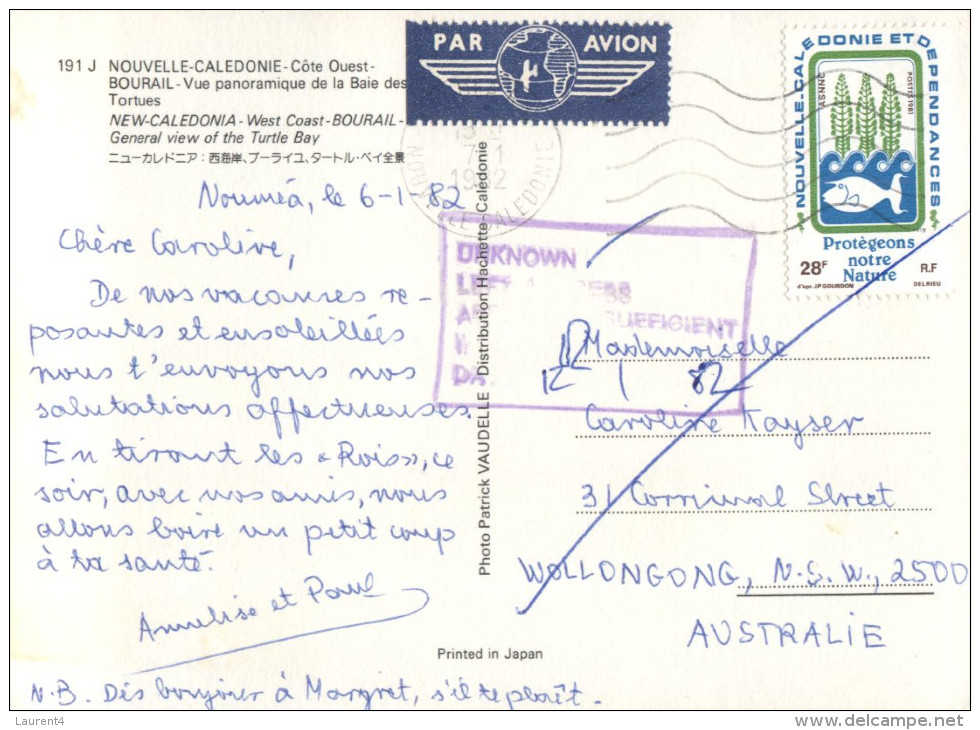 191 J NOUVELLE-CALEDONIE-Côte Ouest-
BOURAIL-Vue panoramique de la Baie des
Tortues
NEW-CALEDONIA-West Coast-BOURAIL-
General view of the Turtle Bay
ニューカレドニア:西海岸、ブーライユ、タートル・ベイ全景
PAR AVION
7-1
1982
NOUVELLE-CALEDONIE ET DEPENDANCES
ASNNC
POSTES 1981
Protègeons
notre
Nature
28F
R.F
d'après J.P GOURDON
DELRIEU
Nouméa, le 6-1-82
Chère Caroline,
De nos vacances re-
posantes et ensoleillées
nous t'envoyons nos
salutations affectueuses.
En tirant les «Rois», ce
soir, avec nos amis, nous
allons boire un petit coup
à ta santé.
Annelise et Paul
N.B. Dis bonjour à Margret, s'il te plaît.
Photo Patrick VAUDELLE - Distribution Hachette-Caledonie
Printed in Japan
UNKNOWN
LEFT ADDRESS
INSUFFICIENT
12 1 82
Mademoiselle
Caroline Kayser
31 Corrimal Street
WOLLONGONG, N.S.W., 2500
AUSTRALIE
Laurent4
www.delcampe.net